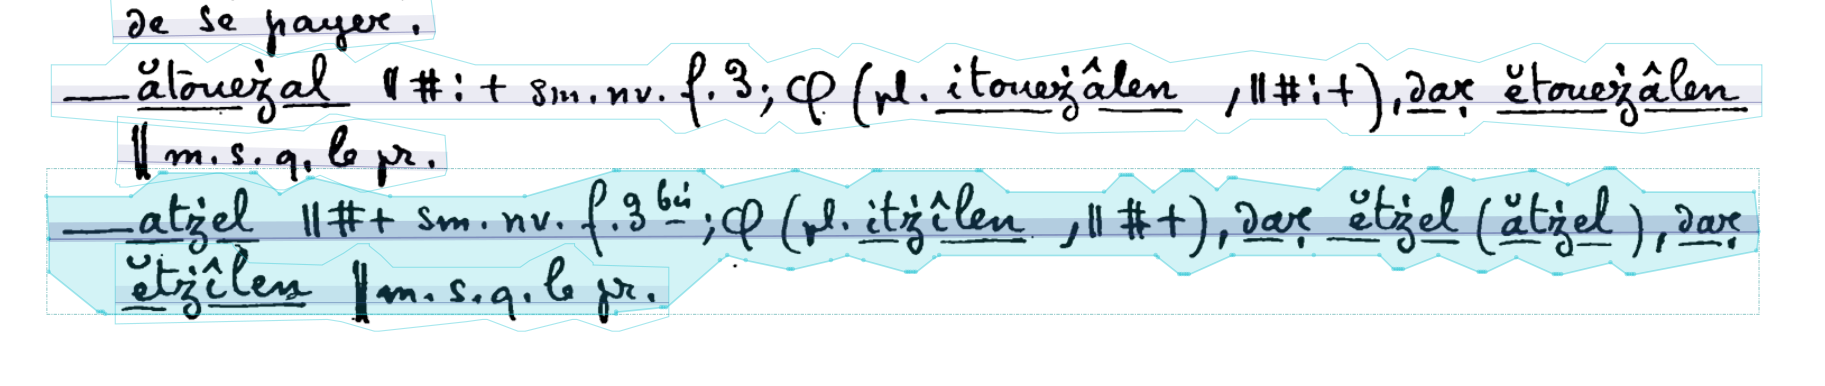 de se payer.
— ătoueẓal ‖ # : + sm. nv. f. 3; φ (pl. itoueẓâlen , ‖ # : +), daṛ ĕtoueẓâlen
‖ m. s. q. le pr.
— atẓel ‖ # + sm. nv. f. 3 bis ; φ (pl. itẓîlen , ‖ # +), daṛ ĕtẓel (ătẓel ), daṛ
ĕtẓîlen ‖ m. s. q. le pr.